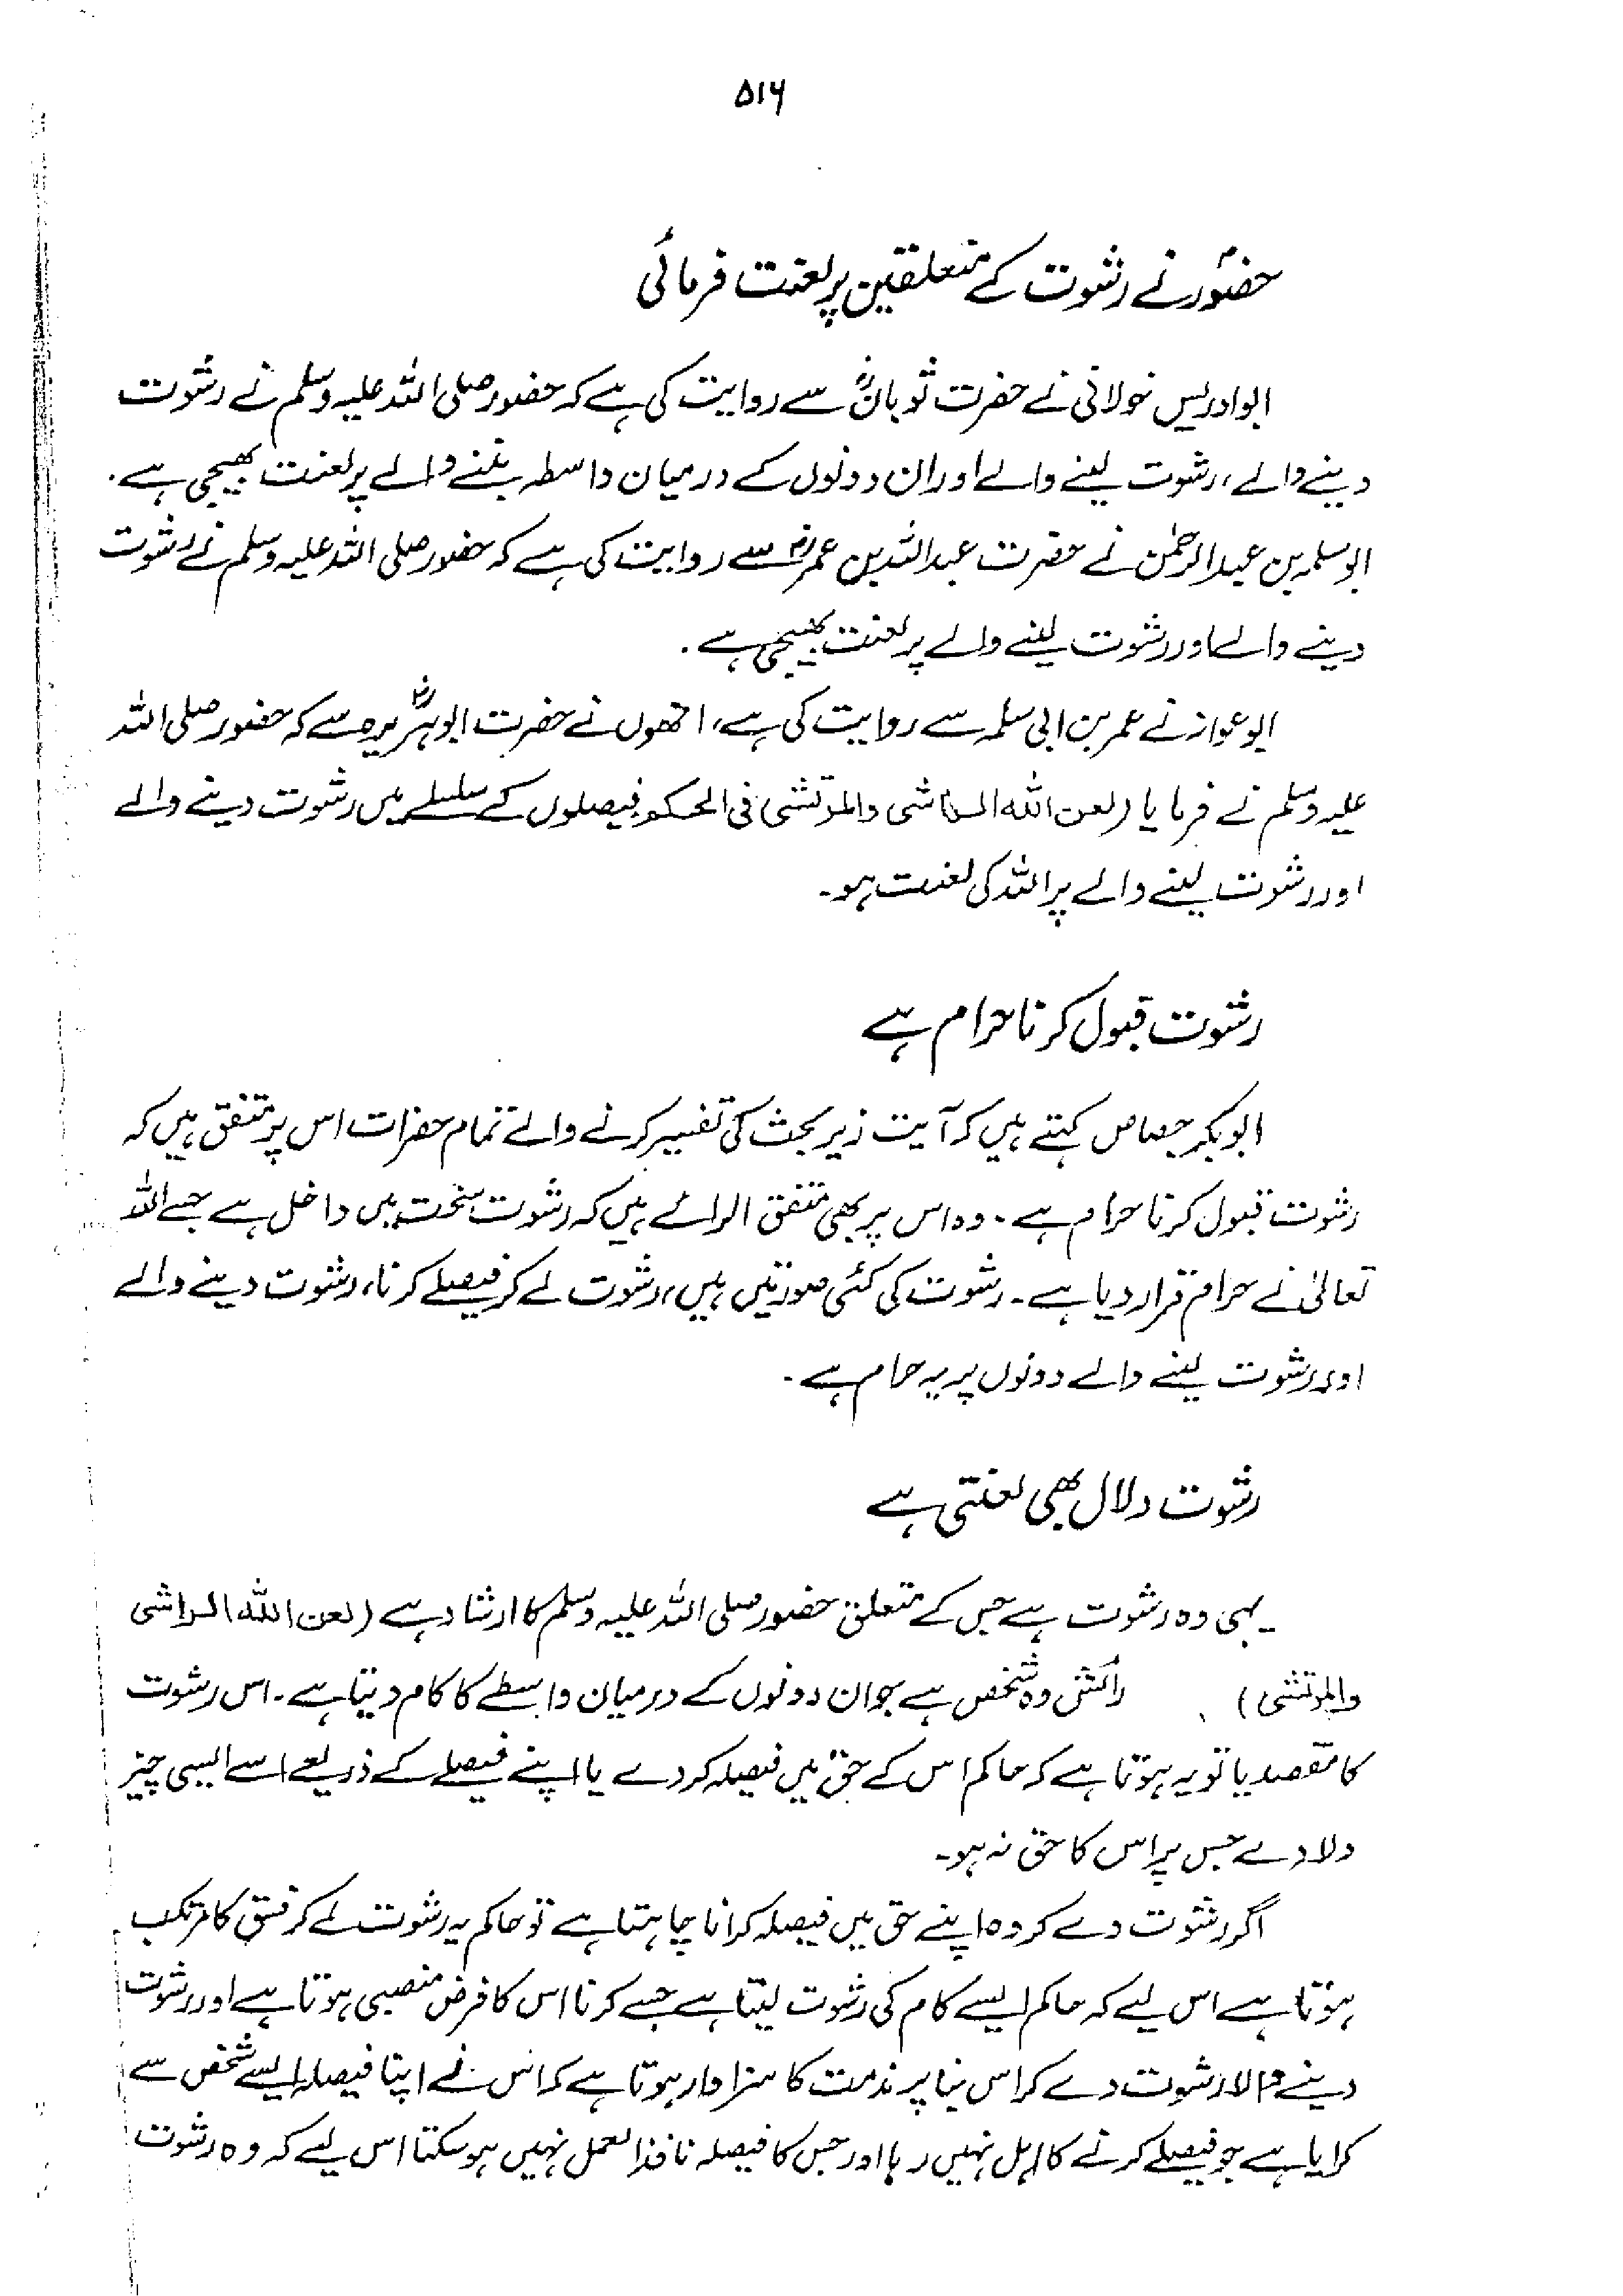 ۵۱۶
حضورؐ نے رشوت کے متعلقین پر لعنت فرمائی
ابوادریس خولانی نے حضرت ثوبانؓ سے روایت کی ہے کہ حضور صلی اللہ علیہ وسلم نے رشوت
دینے والے، رشوت لینے والے اور ان دونوں کے درمیان واسطہ بننے والے پر لعنت بھیجی ہے۔
ابوسلمہ بن عبدالرحمٰن نے حضرت عبداللہ بن عمرؓ سے روایت کی ہے کہ حضور صلی اللہ علیہ وسلم نے رشوت
دینے والے اور رشوت لینے والے پر لعنت بھیجی ہے۔
ابوعوانہ نے عمر بن ابی سلمہ سے روایت کی ہے، انھوں نے حضرت ابوہریرہؓ سے کہ حضور صلی اللہ
علیہ وسلم نے فرمایا (لعن اللہ الراشی والمرتشی فی الحکم فیصلوں کے سلسلے میں رشوت دینے والے
اور رشوت لینے والے پر اللہ کی لعنت ہو۔
رشوت قبول کرنا حرام ہے
ابوبکر جصاص کہتے ہیں کہ آیت زیر بحث کی تفسیر کرنے والے تمام حضرات اس پر متفق ہیں کہ
رشوت قبول کرنا حرام ہے۔ وہ اس پر بھی متفق الرائے ہیں کہ رشوت سُحت میں داخل ہے جسے اللہ
تعالیٰ نے حرام قرار دیا ہے۔ رشوت کی کئی صورتیں ہیں، رشوت لے کر فیصلے کرنا، رشوت دینے والے
اور رشوت لینے والے دونوں پر یہ حرام ہے۔
رشوت دلال بھی لعنتی ہے
یہی وہ رشوت ہے جس کے متعلق حضور صلی اللہ علیہ وسلم کا ارشاد ہے (لعن اللہ الراشی
والمرتشی) رائش وہ شخص ہے جو ان دونوں کے درمیان واسطے کا کام دیتا ہے۔ اس رشوت
کا مقصد یا تو یہ ہوتا ہے کہ حاکم اس کے حق میں فیصلہ کر دے یا اپنے فیصلے کے ذریعے اسے ایسی چیز
دلا دے جس پر اس کا حق نہ ہو۔
اگر رشوت دے کر وہ اپنے حق میں فیصلہ کرانا چاہتا ہے تو حاکم یہ رشوت لے کر فسق کا مرتکب
ہوتا ہے اس لیے کہ حاکم ایسے کام کی رشوت لیتا ہے جسے کرنا اس کا فرض منصبی ہوتا ہے اور رشوت
دینے والا رشوت دے کر اس بنا پر مذمت کا سزاوار ہوتا ہے کہ اس نے اپنا فیصلہ ایسے شخص سے
کرایا ہے جو فیصلے کرنے کا اہل نہیں رہا اور جس کا فیصلہ نافذ العمل نہیں ہو سکتا اس لیے کہ وہ رشوت